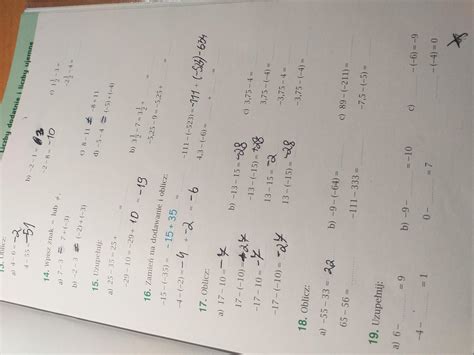 Liczby dodatnie i liczby ujemne
13. Oblicz:
4 − 6 = −2
4 − 55 = −51
b) −2 − 1 = 3
−2 − 8 = −10
c) 1 1/2 − 1 =
−2 1/2 − 4 =
14. Wpisz znak = lub ≠.
a) 7 − 3 7 + (−3)
b) −2 − 3 ≠ (−2) + (−3)
c) 8 − 11 ≠ −8 + 11
d) −5 − 4 = (−5) + (−4)
15. Uzupełnij:
a) 25 − 35 = 25 +
−29 − 10 = −29 + 10 = −19
b) 3 1/2 − 7 = 3 1/2 +
−5,25 − 9 = −5,25 +
16. Zamień na dodawanie i oblicz:
−15 − (−35) = −15 + 35
−4 − (−2) = −4 + −2 = −6
−111 − (−523) = −111 + (−523) = −634
4,3 − (−6) =
17. Oblicz:
a) 17 − 10 =
17 − (−10) =
−17 − 10 =
−17 − (−10) = −27
b) −13 − 15 = −28
−13 − (−15) = −28
13 − 15 = −2
13 − (−15) = −28
c) 3,75 − 4 =
3,75 − (−4) =
−3,75 − 4 =
−3,75 − (−4) =
18. Oblicz:
a) −55 − 33 = 22
65 − 56 =
b) −9 − (−64) =
−111 − 333 =
c) 89 − (−211) =
−7,5 − (−5) =
19. Uzupełnij:
a) 6 − = 9
−4 − = 1
b) −9 − = −10
0 − = 7
c) − (−6) = −9
− (−4) = 0